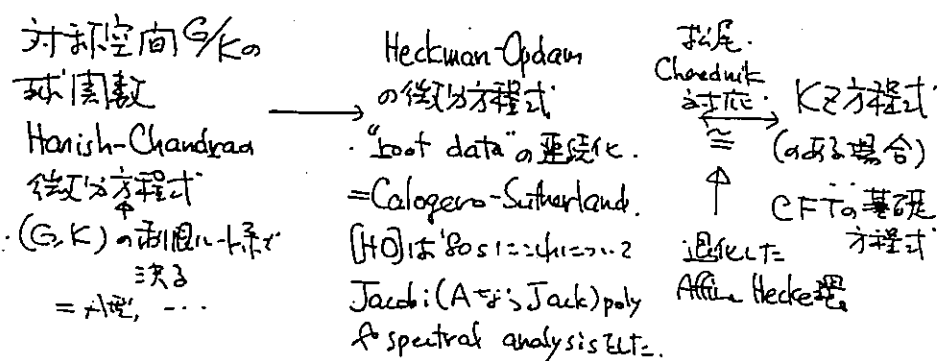 対称空間G/Kの
球関数
Harish-Chandraの
微分方程式
・(G,K)の制限ルート系で
決る
=A型, ...
→
Heckman-Opdam
の微分方程式
・"root data"の連続化.
=Calogero-Sutherland.
[HO]は'80sにこれについて
Jacobi(AならJack)poly
& spectral analysisをした.
松尾.
Cherednik
対応.
≅
↑
退化した
Affine Hecke環
KZ方程式
(のある場合)
CFTの基礎
方程式